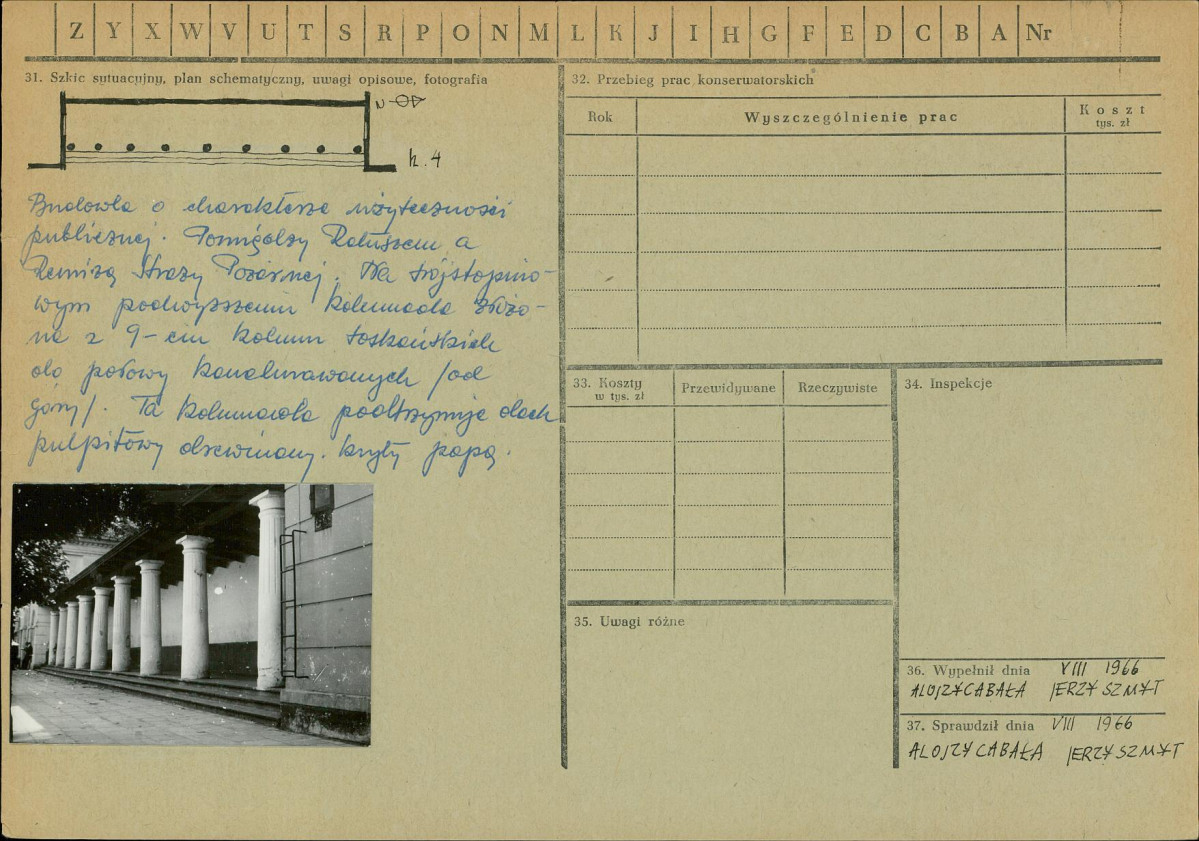 Z Y X W V U T S R P O N M L K J I H G F E D C B A Nr
31. Szkic sytuacyjny, plan schematyczny, uwagi opisowe, fotografia
N
h. 4
Budowla o charakterze użyteczności
publicznej. Pomiędzy Ratuszem a
Remizą Straży Pożarnej. Na trójstopnio-
wym podwyższeniu kolumnada złożo-
na z 9-ciu kolumn toskańskich
do połowy kanelurowanych /od
góry/. Ta kolumnada podtrzymuje dach
pulpitowy drewniany. kryty papą.
32. Przebieg prac konserwatorskich
Rok
Wyszczególnienie prac
Koszt
tys. zł
33. Koszty
w tys. zł
Przewidywane
Rzeczywiste
34. Inspekcje
35. Uwagi różne
36. Wypełnił dnia VIII 1966
ALOJZY CABAŁA JERZY SZMYT
37. Sprawdził dnia VIII 1966
ALOJZY CABAŁA JERZY SZMYT